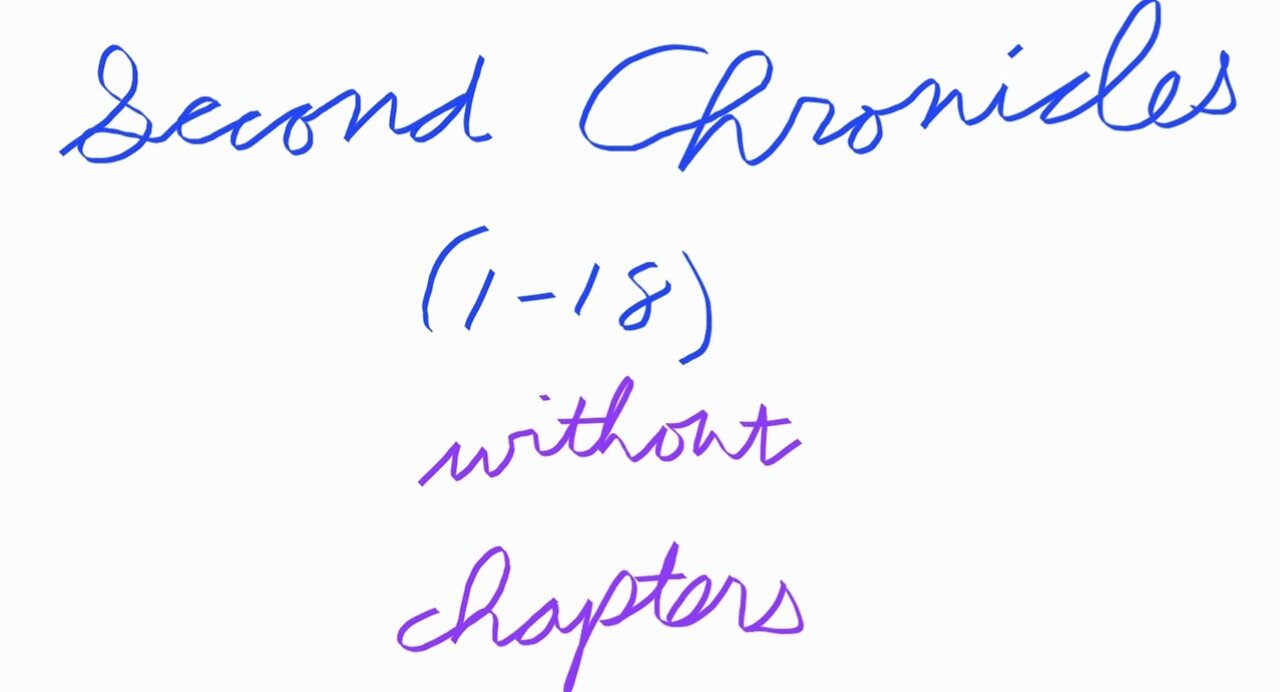 Second Chronicles
(1-18)
without
chapters